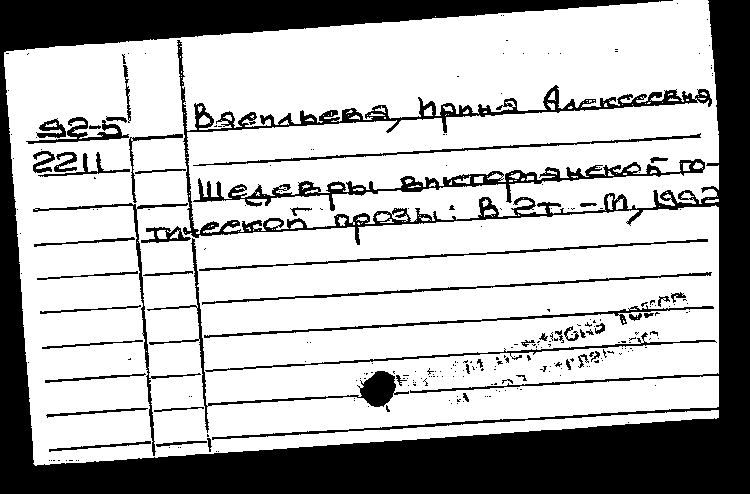 92-5
2211
Васильева, Ирина Алексеевна
Шедевры викторианской го-
тической прозы: В 2т. - М., 1992